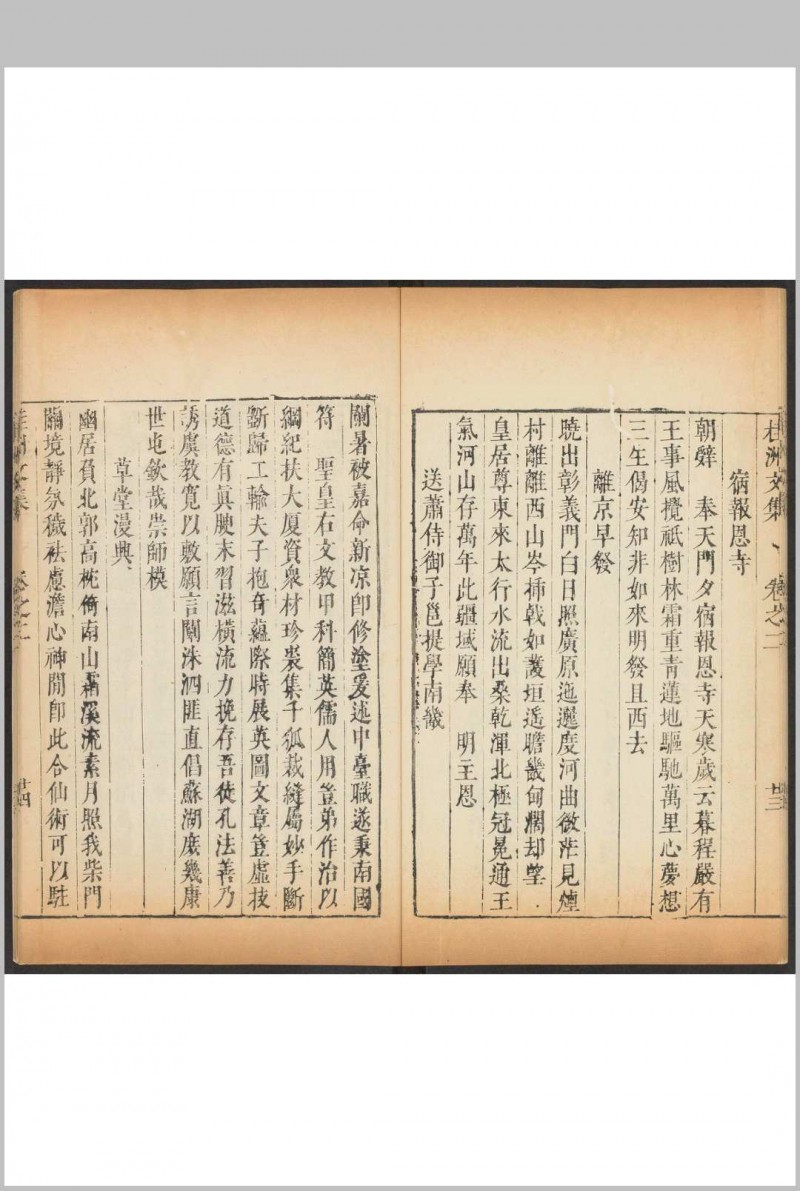 桂洲文集 卷之二 廿三
宿報恩寺
朝辭 奉天門夕宿報恩寺天寒歲云暮程嚴有
王事風攪祇樹林霜重青蓮地驅馳萬里心夢想
三生偈安知非如來明發且西去
離京早發
曉出彰義門白日照廣原迤邐度河曲微茫見煙
村離離西山岑揷戟如護垣遥瞻畿甸濶却望
皇居尊東來太行水流出桑乾渾北極冠冕通王
氣河山存萬年此疆域願奉 明主恩
送蕭侍御子邕提學南畿
關暑被嘉命新凉卽修塗爰述中臺職遂秉南國
符 聖皇右文教甲科簡英儒人用豈弟作治以
綱紀扶大厦資衆材珍裘集千狐裁縫屬妙手斷
斵歸工輸夫子抱竒蘊際時展英圖文章豈虛技
道德有真腴末習滋橫流力挽存吾徒孔法善乃
誘虞教寛以敷願言闡洙泗匪直倡蘇湖庶幾康
世屯欽哉崇師模
草堂漫興
幽居負北郭高枕倚南山霜溪流素月照我柴門
關境靜氛穢袪慮澹心神閒卽此合仙術可以駐
卷之二 廿四